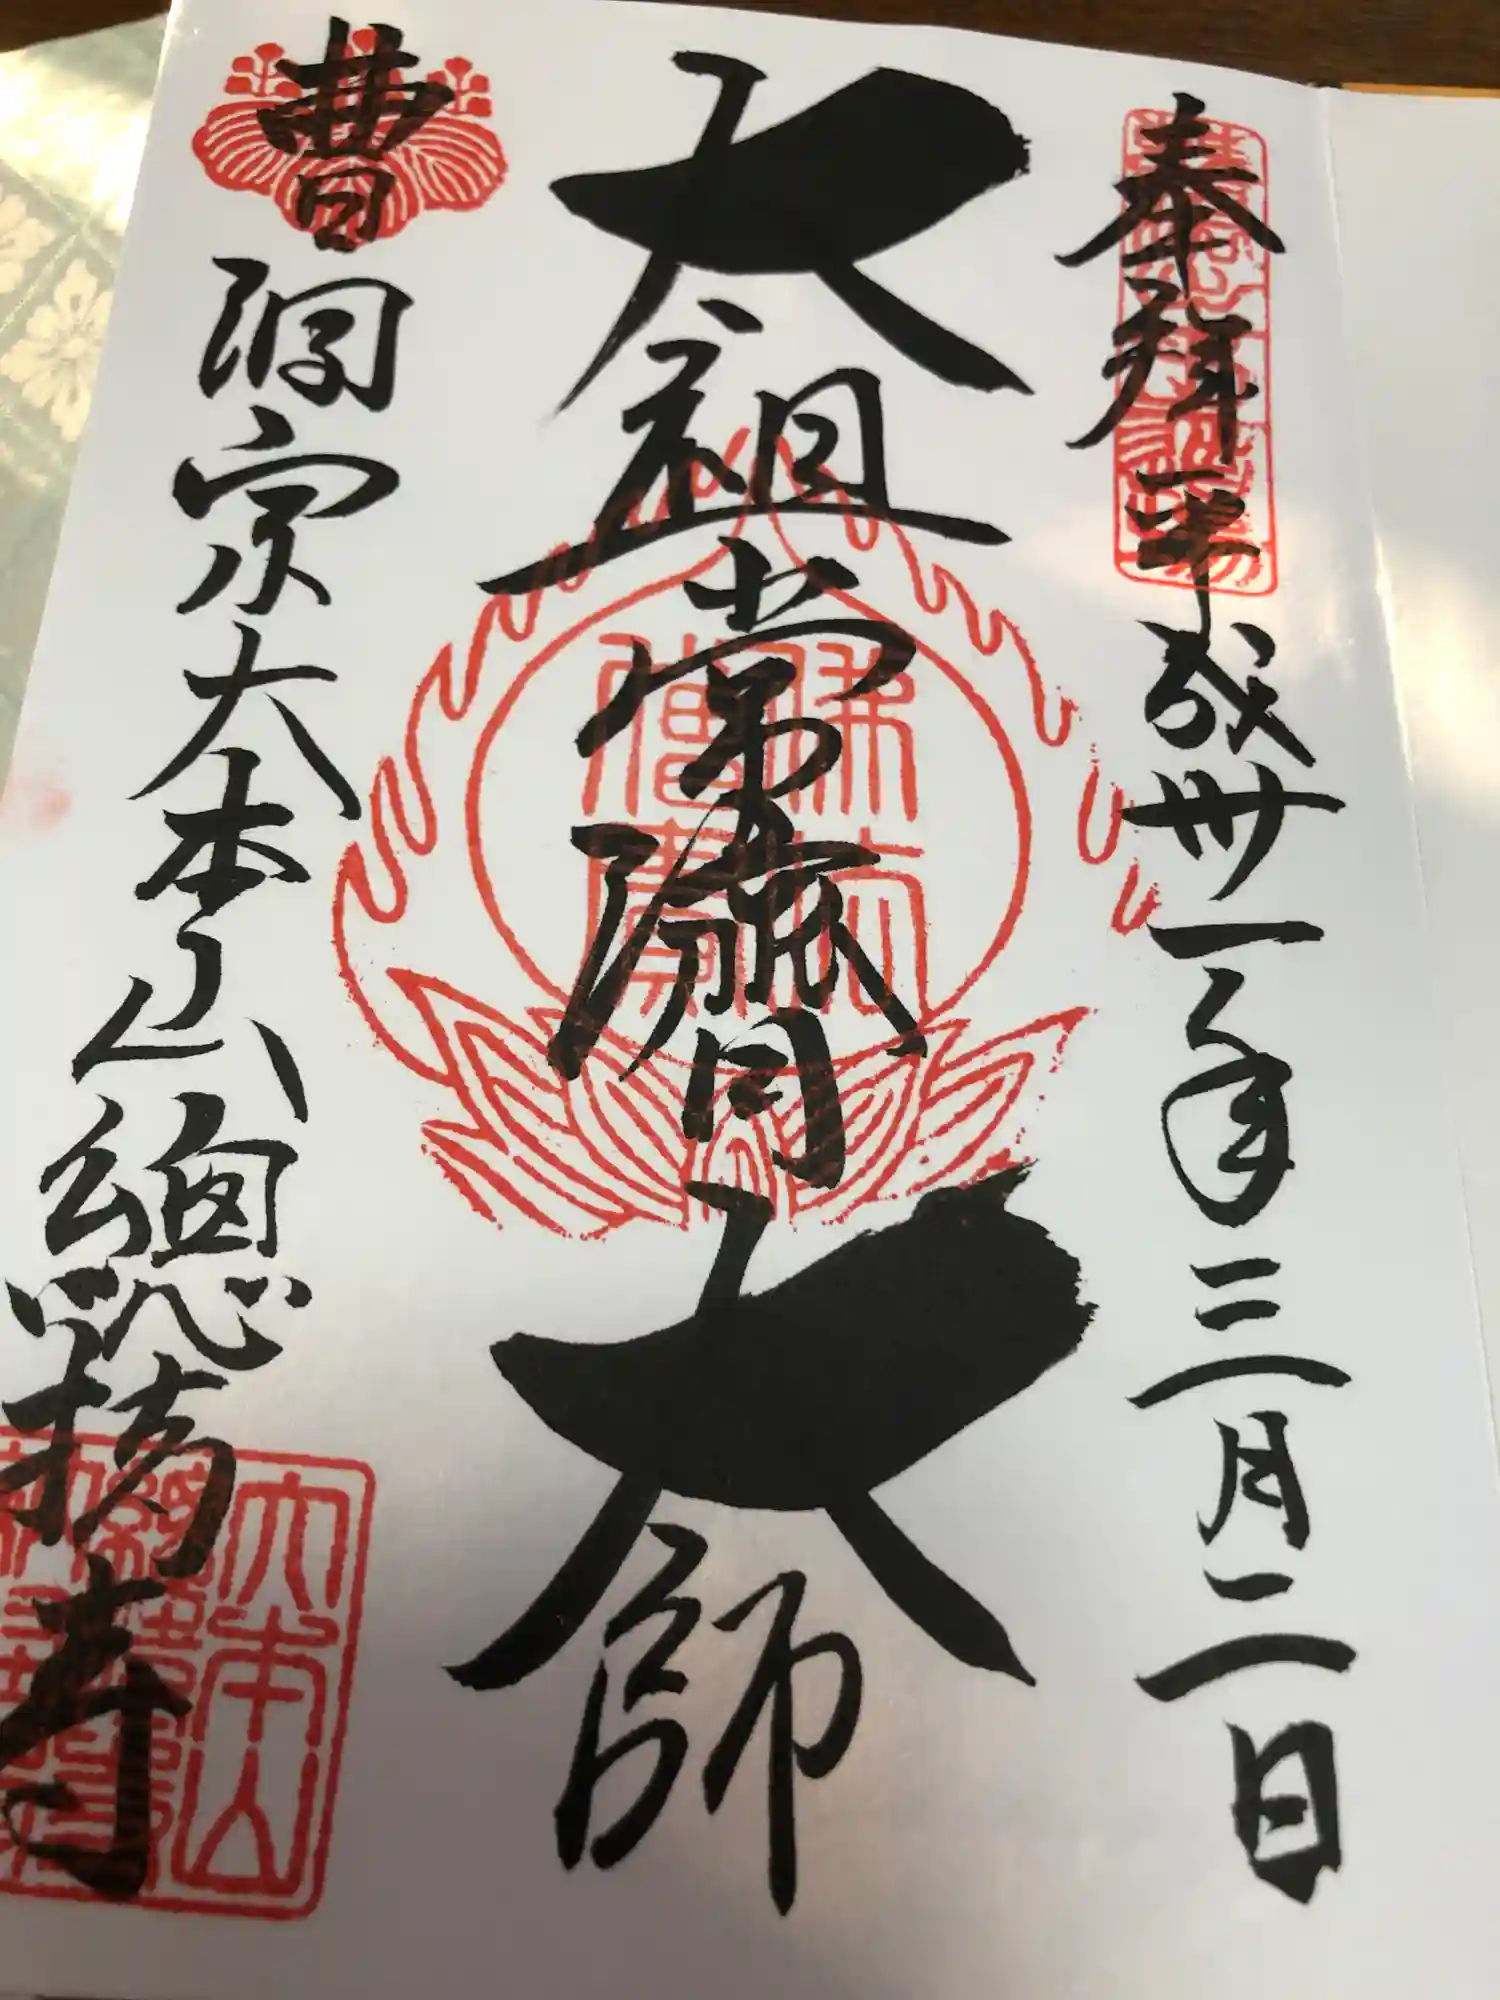 奉拜 平成卅一年三月二日
太祖常濟大師
曹洞宗大本山總持寺
佛法僧寶
大本山